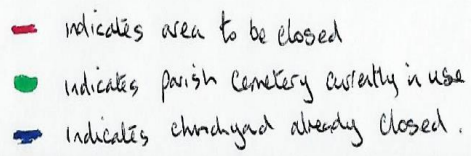 indicates area to be closed
indicates parish cemetery currently in use
indicates churchyard already closed.